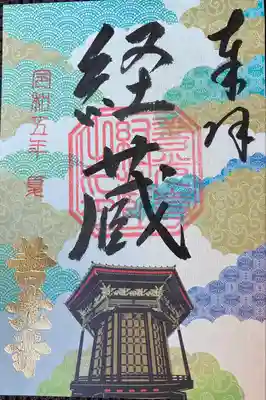 奉拝
経蔵
令和五年 夏
善光寺